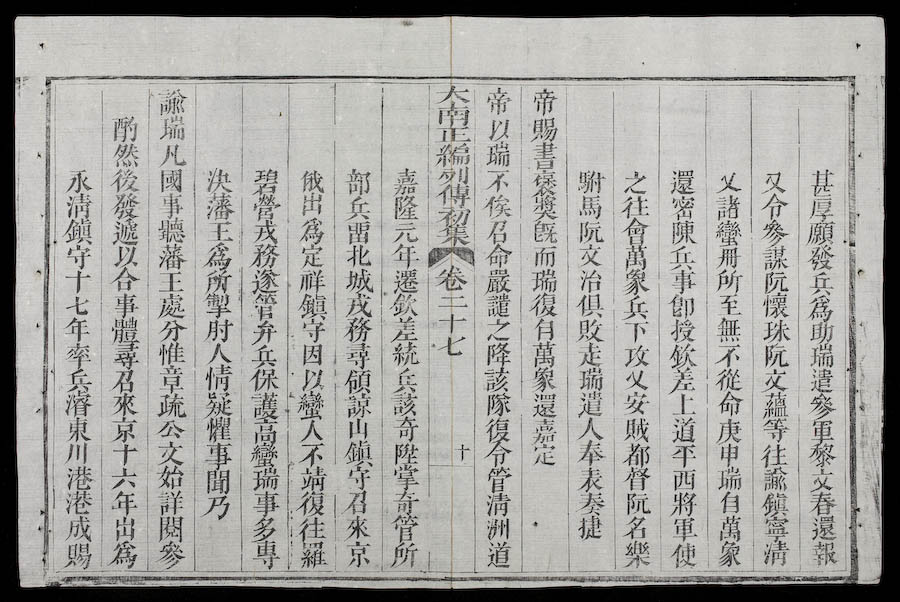 甚厚願發兵爲助瑞遣參軍黎文春還報
又令參謀阮懷珠阮文蘊等往諭鎮寧清
乂諸蠻冊所至無不從命庚申瑞自萬象
還密陳兵事卽授欽差上道平西將軍使
之往會萬象兵下攻乂安賊都督阮名樂
駙馬阮文治俱敗走瑞遣人奉表奏捷
帝賜書褒奬旣而瑞復自萬象還嘉定
帝以瑞不俟召命嚴譴之降該隊復令管淸洲道
大南正編列傳初集 卷二十七 十
嘉隆元年遷欽差統兵該奇陞掌奇管所
部兵留北城戎務尋領諒山鎮守召來京
俄出爲定祥鎮守因以蠻人不靖復往羅
碧營戎務遂管弁兵保護高蠻瑞事多專
決藩王爲所掣肘人情疑懼事聞乃
諭瑞凡國事聽藩王處分惟章疏公文始詳閱參
酌然後發遞以合事體尋召來京十六年出爲
永淸鎮守十七年率兵濬東川港港成賜